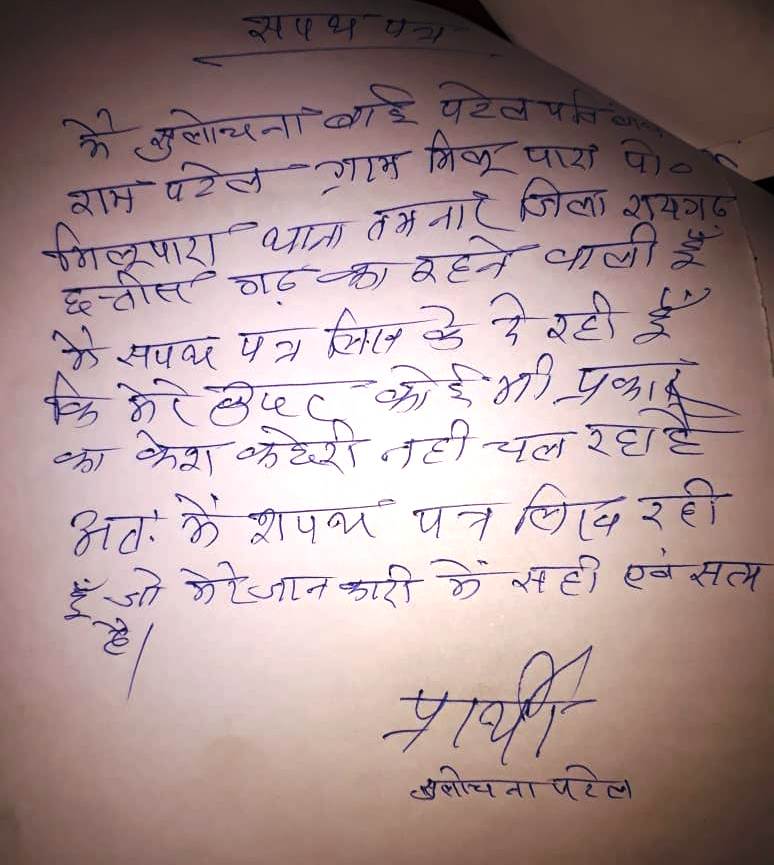 सपथ पत्र
मै सुलोचना बाई पटेल पति
राम पटेल ग्राम मिलू पारा पो०
मिलूपारा थाना तमनार जिला रायगढ़
छत्तीस गढ़ का रहने वाली हूँ
मै सपथ पत्र लिख के दे रही हूँ
कि मेरे उपर कोई भी प्रकार
का केश कछेरी नही चल रहा है
अतः मैं शपथ पत्र लिख रही
हूँ जो मेरे जानकारी में सही एवं सत्य
है।
प्रार्थी
सुलोचना पटेल